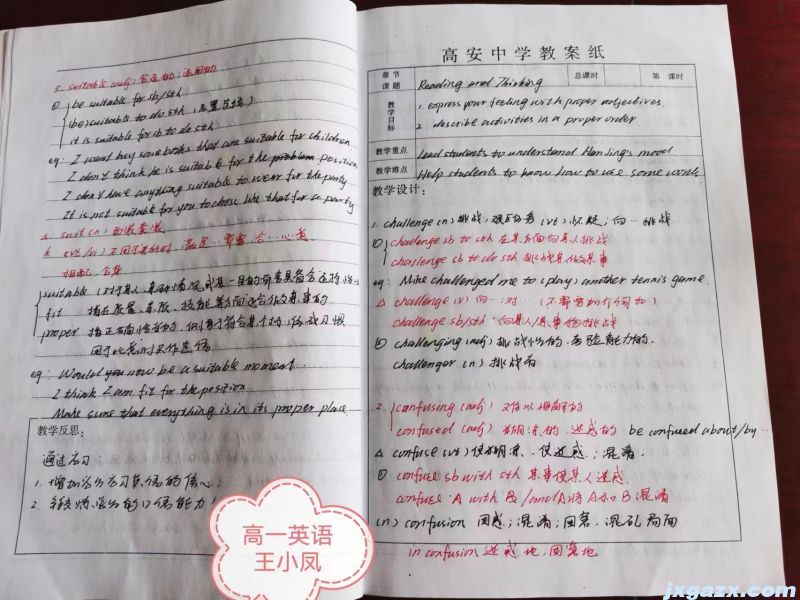 5. suitable (adj) 合适的; 适用的
① be suitable for sb/sth
(be) suitable to do sth (后置定语)
it is suitable for sb to do sth
eg: I want buy some books that are suitable for children.
I don't think he is suitable for the position
I don't have anything suitable to wear for the party
It is not suitable for you to dress like that for a party
suit (n) 西装套装
suitable
fit
proper
eg: Would you now be a suitable moment
I think I am fit for the position
Make sure that everything is in its proper place.
教学反思:
通过学习
1. 增加学生学习英语的信心
2. 锻炼学生的口语能力!
高一英语
王小凤
高安中学教案纸
章节课题 Reading and Thinking 总课时 第 课时
教学目标 1. express your feeling with proper adjectives
2. describe activities in a proper order
教学重点 Lead students to understand Han Jing's mood
教学难点 Help students to know how to use some words
教学设计:
1. challenge (n) 挑战, 艰巨任务 (vt) 怀疑; 向…挑战
① challenge sb to sth 在某方面向某人挑战
challenge sb to do sth 挑战某人做某事
eg: Mike challenged me to (play) another tennis game.
△ challenge (v) 向…对… (不需要加介词 to)
challenge sb/sth 向某人/某事物挑战
② challenging (adj) 挑战性的, 考验能力的.
challenger (n) 挑战者
2. confusing (adj) 难以理解的
confused (adj) 糊涂的 迷惑的 be confused about/by…
△ confuse (vt) 使糊涂, 使迷惑; 混淆
① confuse sb with sth 某事使某人迷惑
confuse A with B/and A将A和B混淆
(n) confusion 困惑; 混淆; 困窘; 混乱局面
in confusion 迷惑地, 困窘地
jxgazx.com